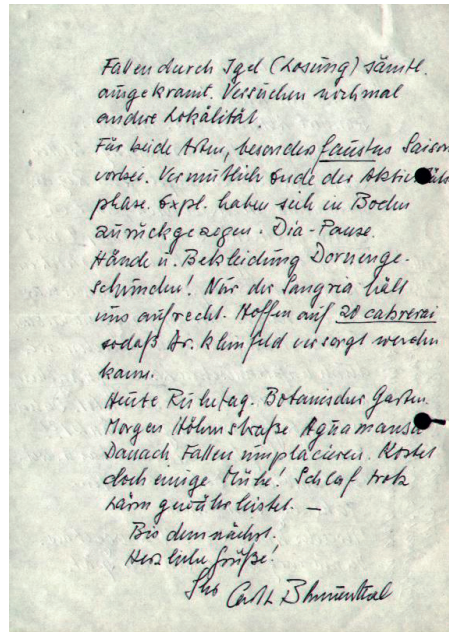 Fallen durch Igel (Losung) sämtl.
ausgekramt. Versuchen nochmal
andere Lokalität.
Für beide Arten, besonders faustus Saison
vorbei. Vermutlich Ende der Aktivitäts
phase. Expl. haben sich in Boden
zurückgezogen. Dia-Pause.
Hände u. Bekleidung Dornenge-
schunden! Nur der Sangria hält
uns aufrecht. Hoffen auf 20 cabrerai
sodaß Dr. Kleinfeld versorgt werden
kann.
Heute Ruhetag. Botanischer Garten.
Morgen Höhenstraße Aguamansa
Danach Fallen umplacieren. Kostet
doch einige Mühe! Schlaf trotz
Lärm gewährleistet. —
Bis demnächst.
Herzliche Grüße!
Ihr Blumenthal